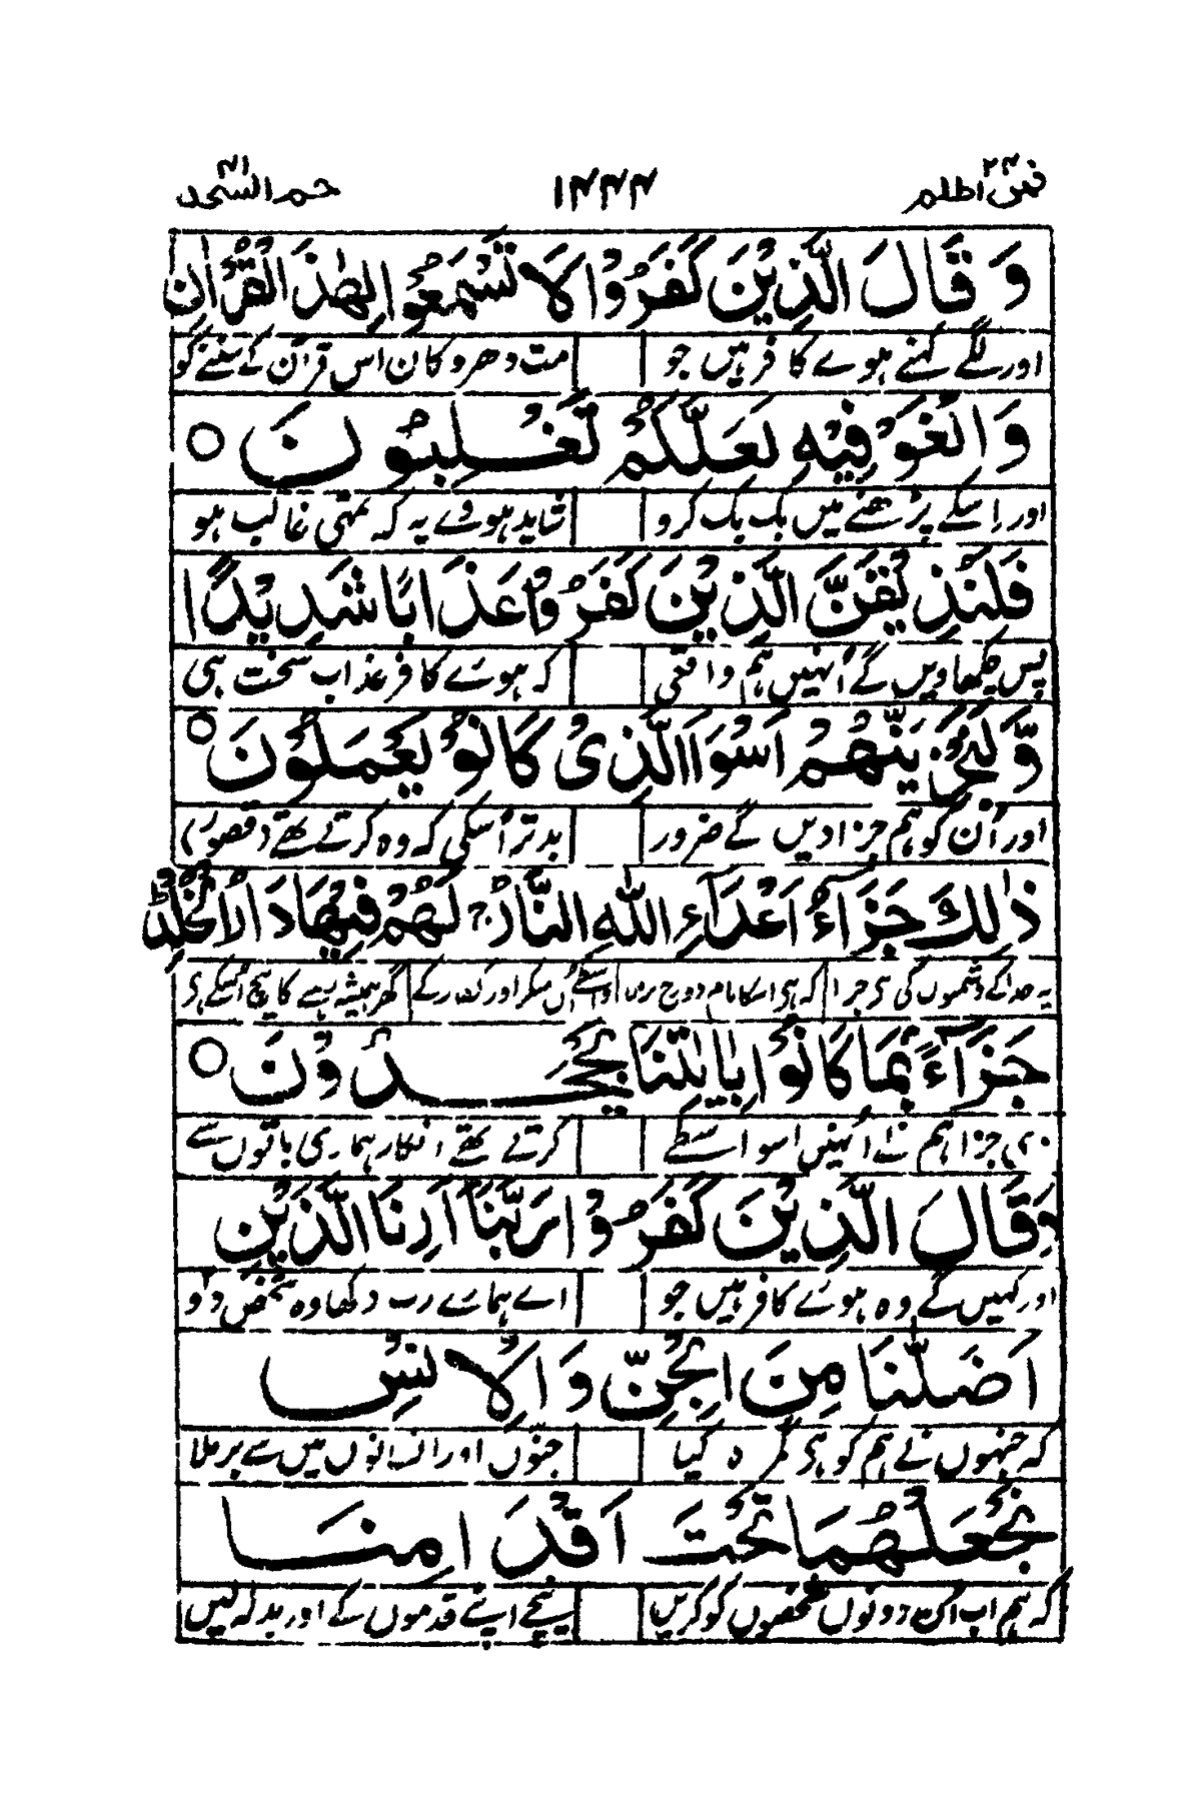 فمن اظلم ۲۴ ۱۴۴۴ حم السجدہ ۴۱
وَقَالَ الَّذِيْنَ كَفَرُوْا لَا تَسْمَعُوْا لِهٰذَا الْقُرْاٰنِ
اور لگے کہنے ہوے کافر ہیں جو مت دھرو کان اس قرآن کے سننے کو
وَالْغَوْا فِيْهِ لَعَلَّكُمْ تَغْلِبُوْنَ ○
اور اسکے پڑھنے میں بک بک کرو شاید ہووے یہ کہ تمہی غالب ہو
فَلَنُذِيْقَنَّ الَّذِيْنَ كَفَرُوْا عَذَابًا شَدِيْدًا
پس چکھاویں گے اُنہیں ہم واقعی کہ ہوئے کافر عذاب سخت ہی
وَّلَنَجْزِيَنَّهُمْ اَسْوَاَ الَّذِىْ كَانُوْا يَعْمَلُوْنَ ○
اور اُن کو ہم جزا دیں گے ضرور بدتر اُسکی کہ وہ کرتے تھے (قصور)
ذٰلِكَ جَزَآءُ اَعْدَآءِ اللّٰهِ النَّارُ ۚ لَهُمْ فِيْهَا دَارُ الْخُلْدِ
یہ خدا کے دشمنوں کی ہی جزا کہ ہی اسکا نام دوزخ واسطے اُن منکر اور کے گھر ہمیشہ رہنے کا بیچ اُسکے ہی
جَزَآءًۢ بِمَا كَانُوْا بِاٰيٰتِنَا يَجْحَدُوْنَ ○
دی جزا ہم نے اُنہیں اسواسطے کرتے تھے انکار ہماری باتوں سے
وَقَالَ الَّذِيْنَ كَفَرُوْا رَبَّنَآ اَرِنَا الَّذَيْنِ
اور کہیں گے وہ ہوئے کافر ہیں جو اے ہمارے رب دکھا وہ شخص دو
اَضَلّٰنَا مِنَ الْجِنِّ وَالْاِنْسِ
کہ جنہوں نے ہم کو ہی گمرہ کیا جنوں اور انسانوں میں سے برملا
نَجْعَلْهُمَا تَحْتَ اَقْدَامِنَا
کہ ہم اب اُن دونوں شخصوں کو کریں نیچے اپنے قدموں کے اور بدلہ لیں